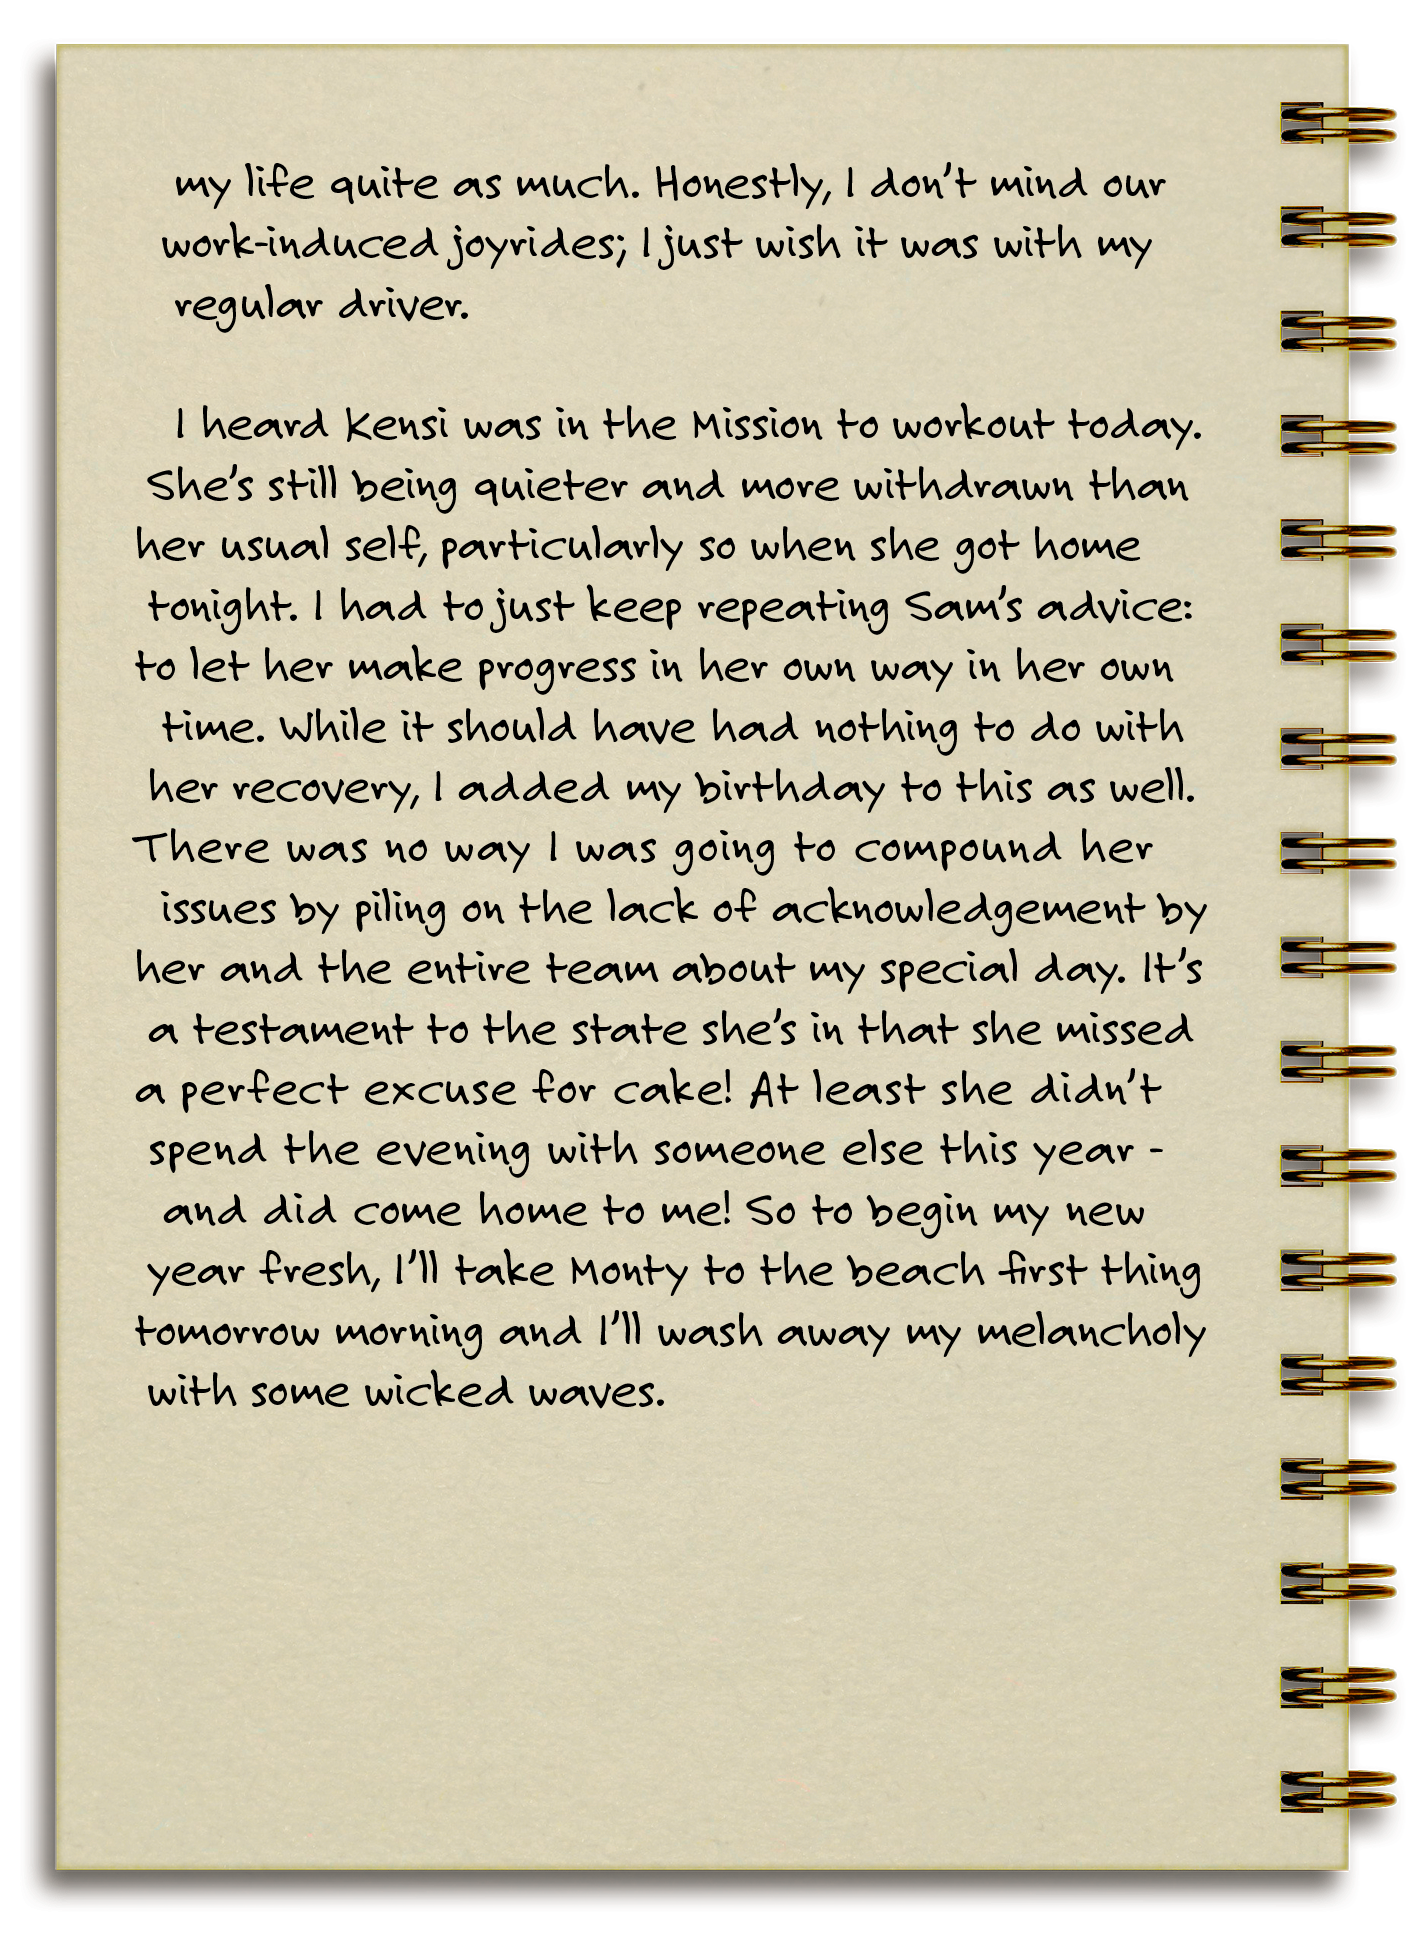 my life quite as much. Honestly, I don't mind our
work-induced joyrides; I just wish it was with my
regular driver.
I heard Kensi was in the Mission to workout today.
She's still being quieter and more withdrawn than
her usual self, particularly so when she got home
tonight. I had to just keep repeating Sam's advice:
to let her make progress in her own way in her own
time. While it should have had nothing to do with
her recovery, I added my birthday to this as well.
There was no way I was going to compound her
issues by piling on the lack of acknowledgement by
her and the entire team about my special day. It's
a testament to the state she's in that she missed
a perfect excuse for cake! At least she didn't
spend the evening with someone else this year -
and did come home to me! So to begin my new
year fresh, I'll take Monty to the beach first thing
tomorrow morning and I'll wash away my melancholy
with some wicked waves.